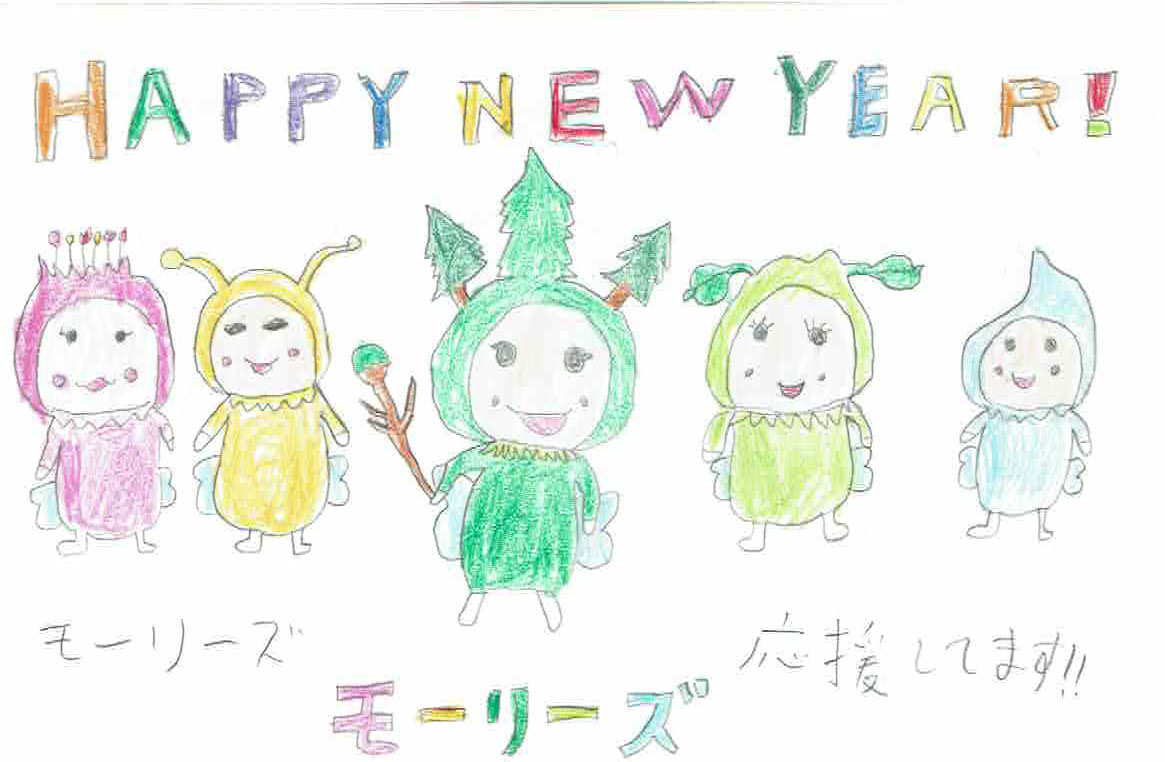 HAPPY NEW YEAR!
モーリーズ 応援してます!!
モーリーズ